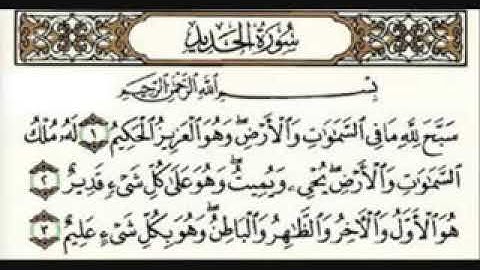 سُورَةُ الحَدِيدِ
بِسْمِ اللَّهِ الرَّحْمَٰنِ الرَّحِيمِ
سَبَّحَ لِلَّهِ مَا فِي السَّمَٰوَٰتِ وَالْأَرْضِ ۖ وَهُوَ الْعَزِيزُ الْحَكِيمُ ١ لَهُۥ مُلْكُ
السَّمَٰوَٰتِ وَالْأَرْضِ ۖ يُحْيِۦ وَيُمِيتُ ۖ وَهُوَ عَلَىٰ كُلِّ شَىْءٍ قَدِيرٌ ٢
هُوَ الْأَوَّلُ وَالْآخِرُ وَالظَّٰهِرُ وَالْبَاطِنُ ۖ وَهُوَ بِكُلِّ شَىْءٍ عَلِيمٌ ٣